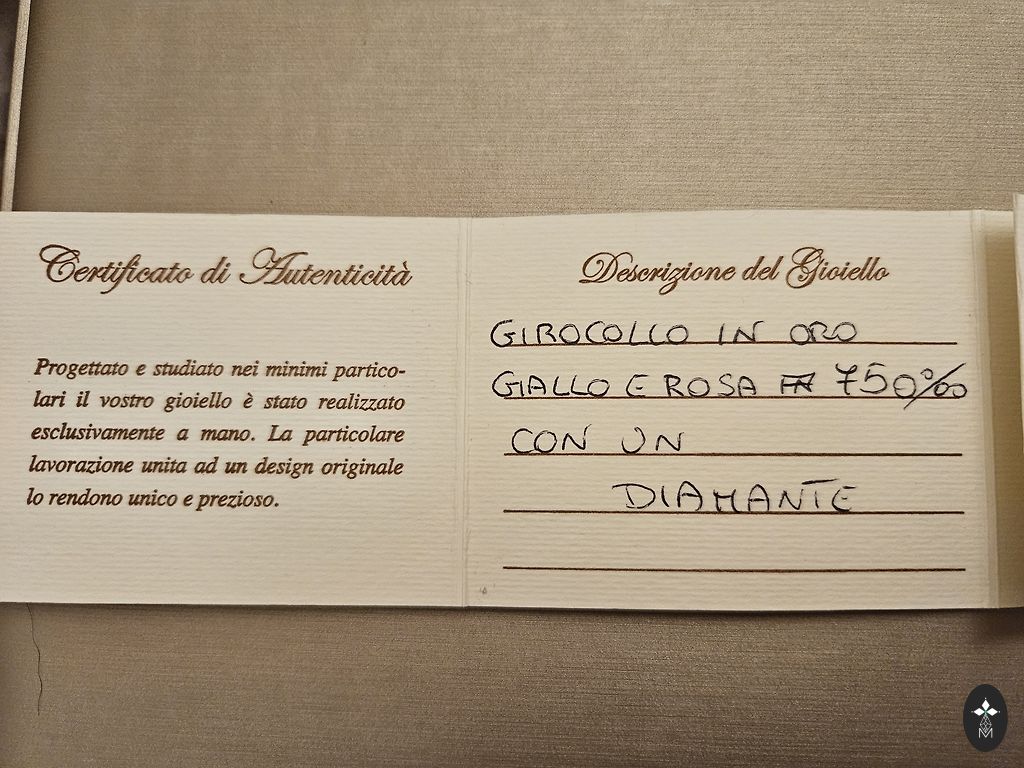 Certificato di Autenticità
Progettato e studiato nei minimi partico-
lari il vostro gioiello è stato realizzato
esclusivamente a mano. La particolare
lavorazione unita ad un design originale
lo rendono unico e prezioso.
Descrizione del Gioiello
GIROCOLLO IN ORO
GIALLO E ROSA 750‰
CON UN
DIAMANTE
M